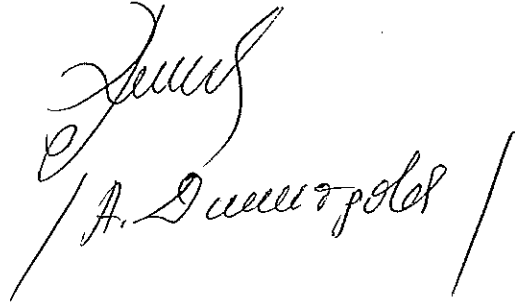 /А. Димитрова/